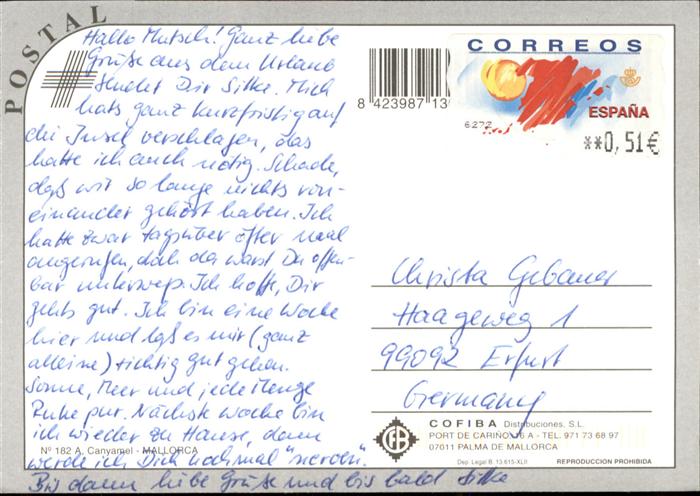 POSTAL
Hallo Mutsch! Ganz liebe
Grüße aus dem Urlaub
sendet Dir Silke. Mich
hats ganz kurzfristig auf
die Insel verschlagen, das
hatte ich auch nötig. Schade,
daß wir so lange nichts von-
einander gehört haben. Ich
hatte zwar tagsüber öfter mal
angerufen, doch da warst Du offen-
bar unterwegs. Ich hoffe, Dir
gehts gut. Ich bin eine Woche
hier und laß es mir (ganz
alleine) richtig gut gehen.
Sonne, Meer und jede Menge
Ruhe pur. Nächste Woche bin
ich wieder zu Hause, dann
werde ich Dich nochmal "nerven".
Bis dann liebe Grüße und bis bald Silke
Nº 182 A, Canyamel - MALLORCA
8 423987 13
CORREOS
ESPAÑA
6277
**0,51€
Christa Gebauer
Haageweg 1
99092 Erfurt
Germany
COFIBA Distribuciones, S.L.
PORT DE CARIÑO, 6 A - TEL. 971 73 68 97
07011 PALMA DE MALLORCA
Dep. Legal B. 13.615-XLII REPRODUCCIÓN PROHIBIDA